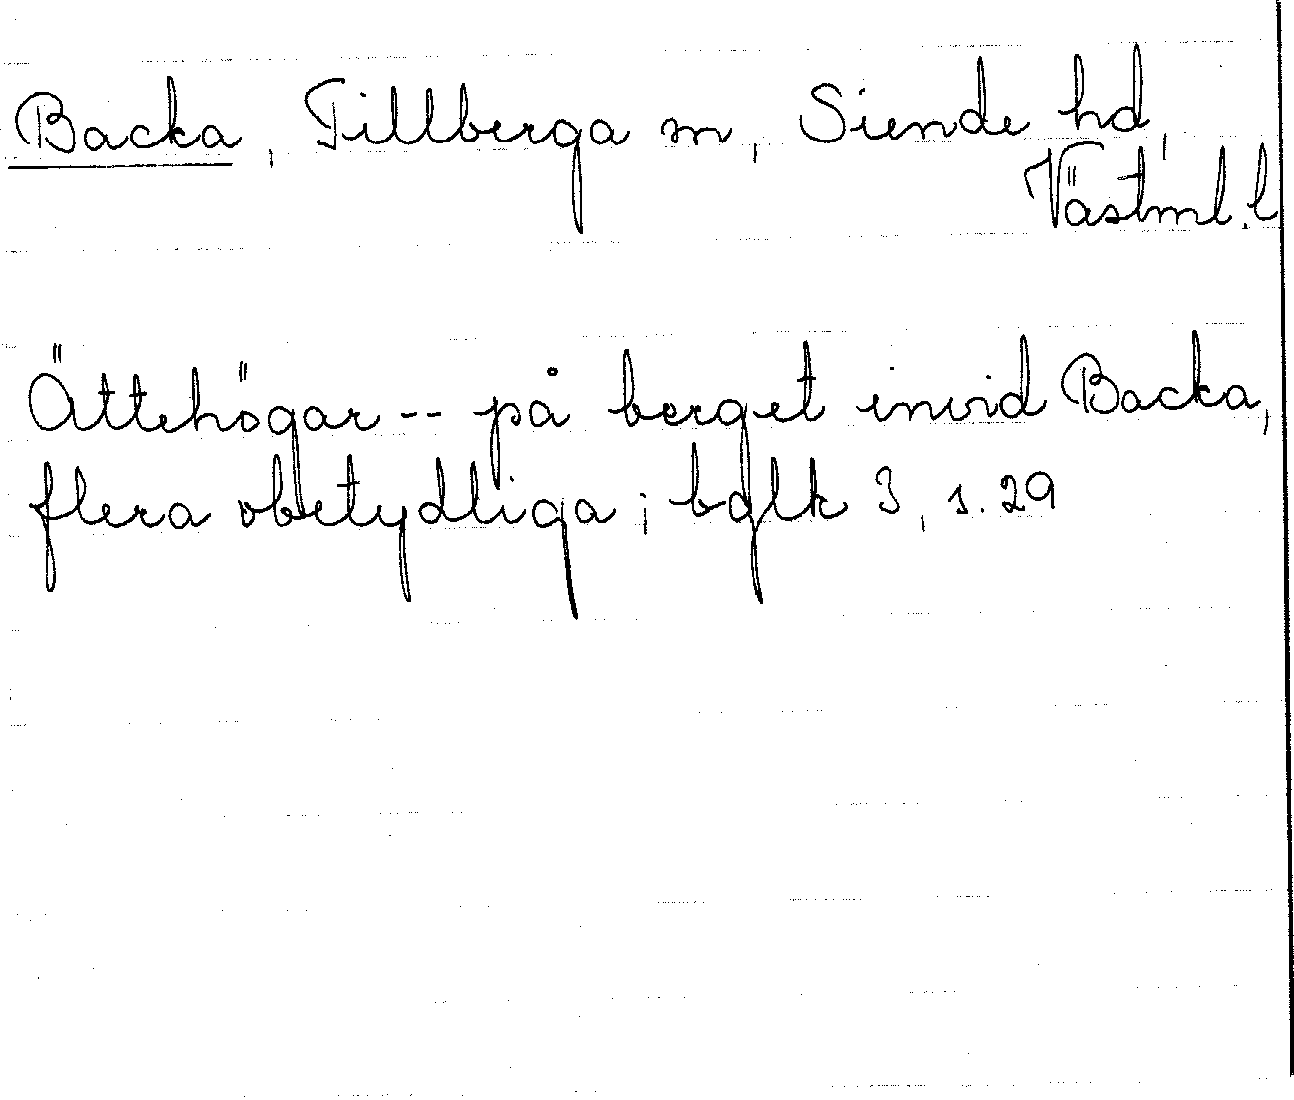 Backa, Tillberga sn, Siende hd,
Västml. l
Ättehögar -- på berget invid Backa,
flera obetydliga; bglk 3, s. 29